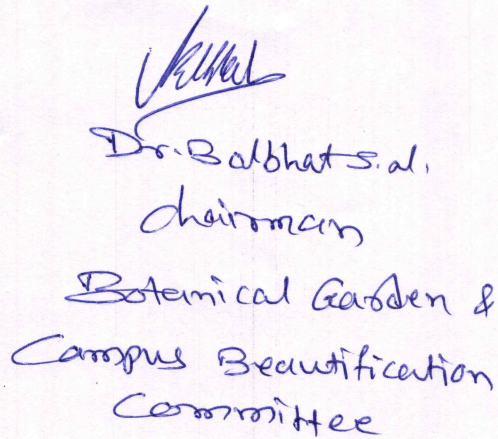 Dr. Balbhat S.al.
Chairman
Botanical Garden &
Campus Beautification
Committee